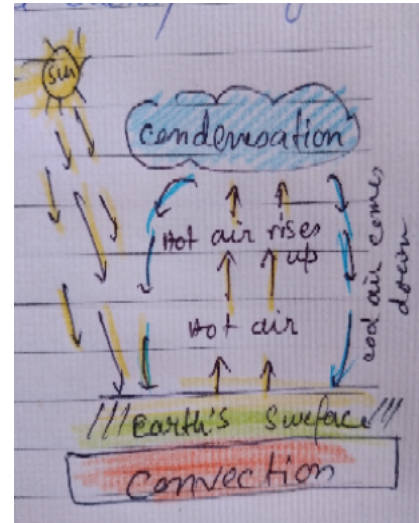 Sun
condensation
Hot air rises
up
cool air comes
down
Hot air
Earth's Surface
Convection